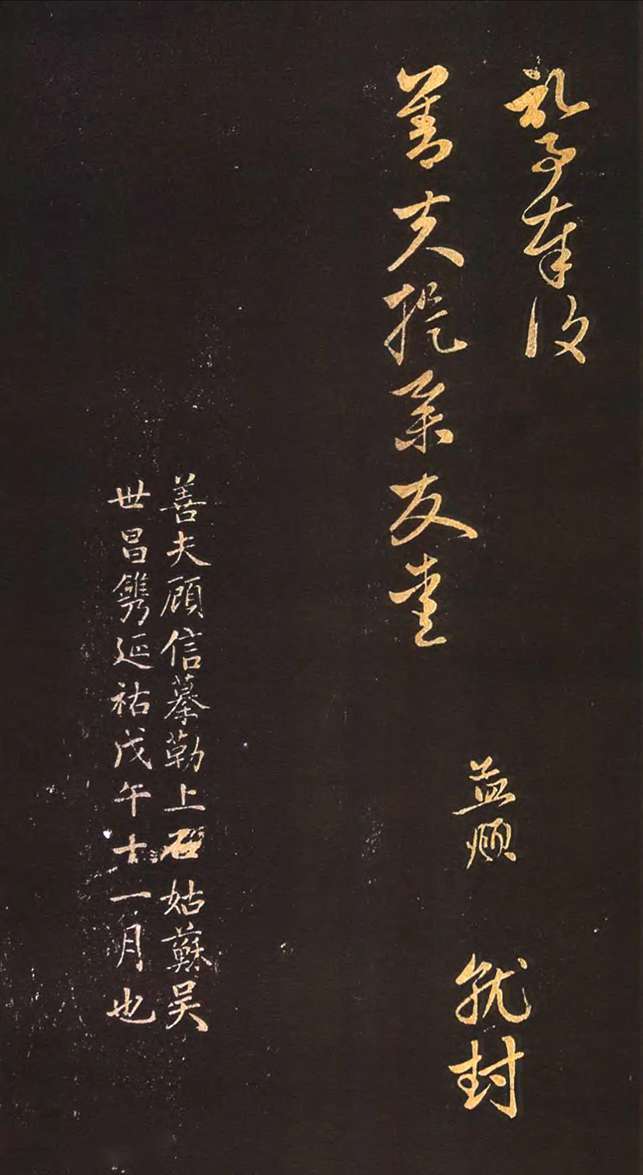 札子奉復
善夫提舉友愛
孟頫 就封
善夫顧信摹勒上石姑蘇吳
世昌鐫延祐戊午十一月也